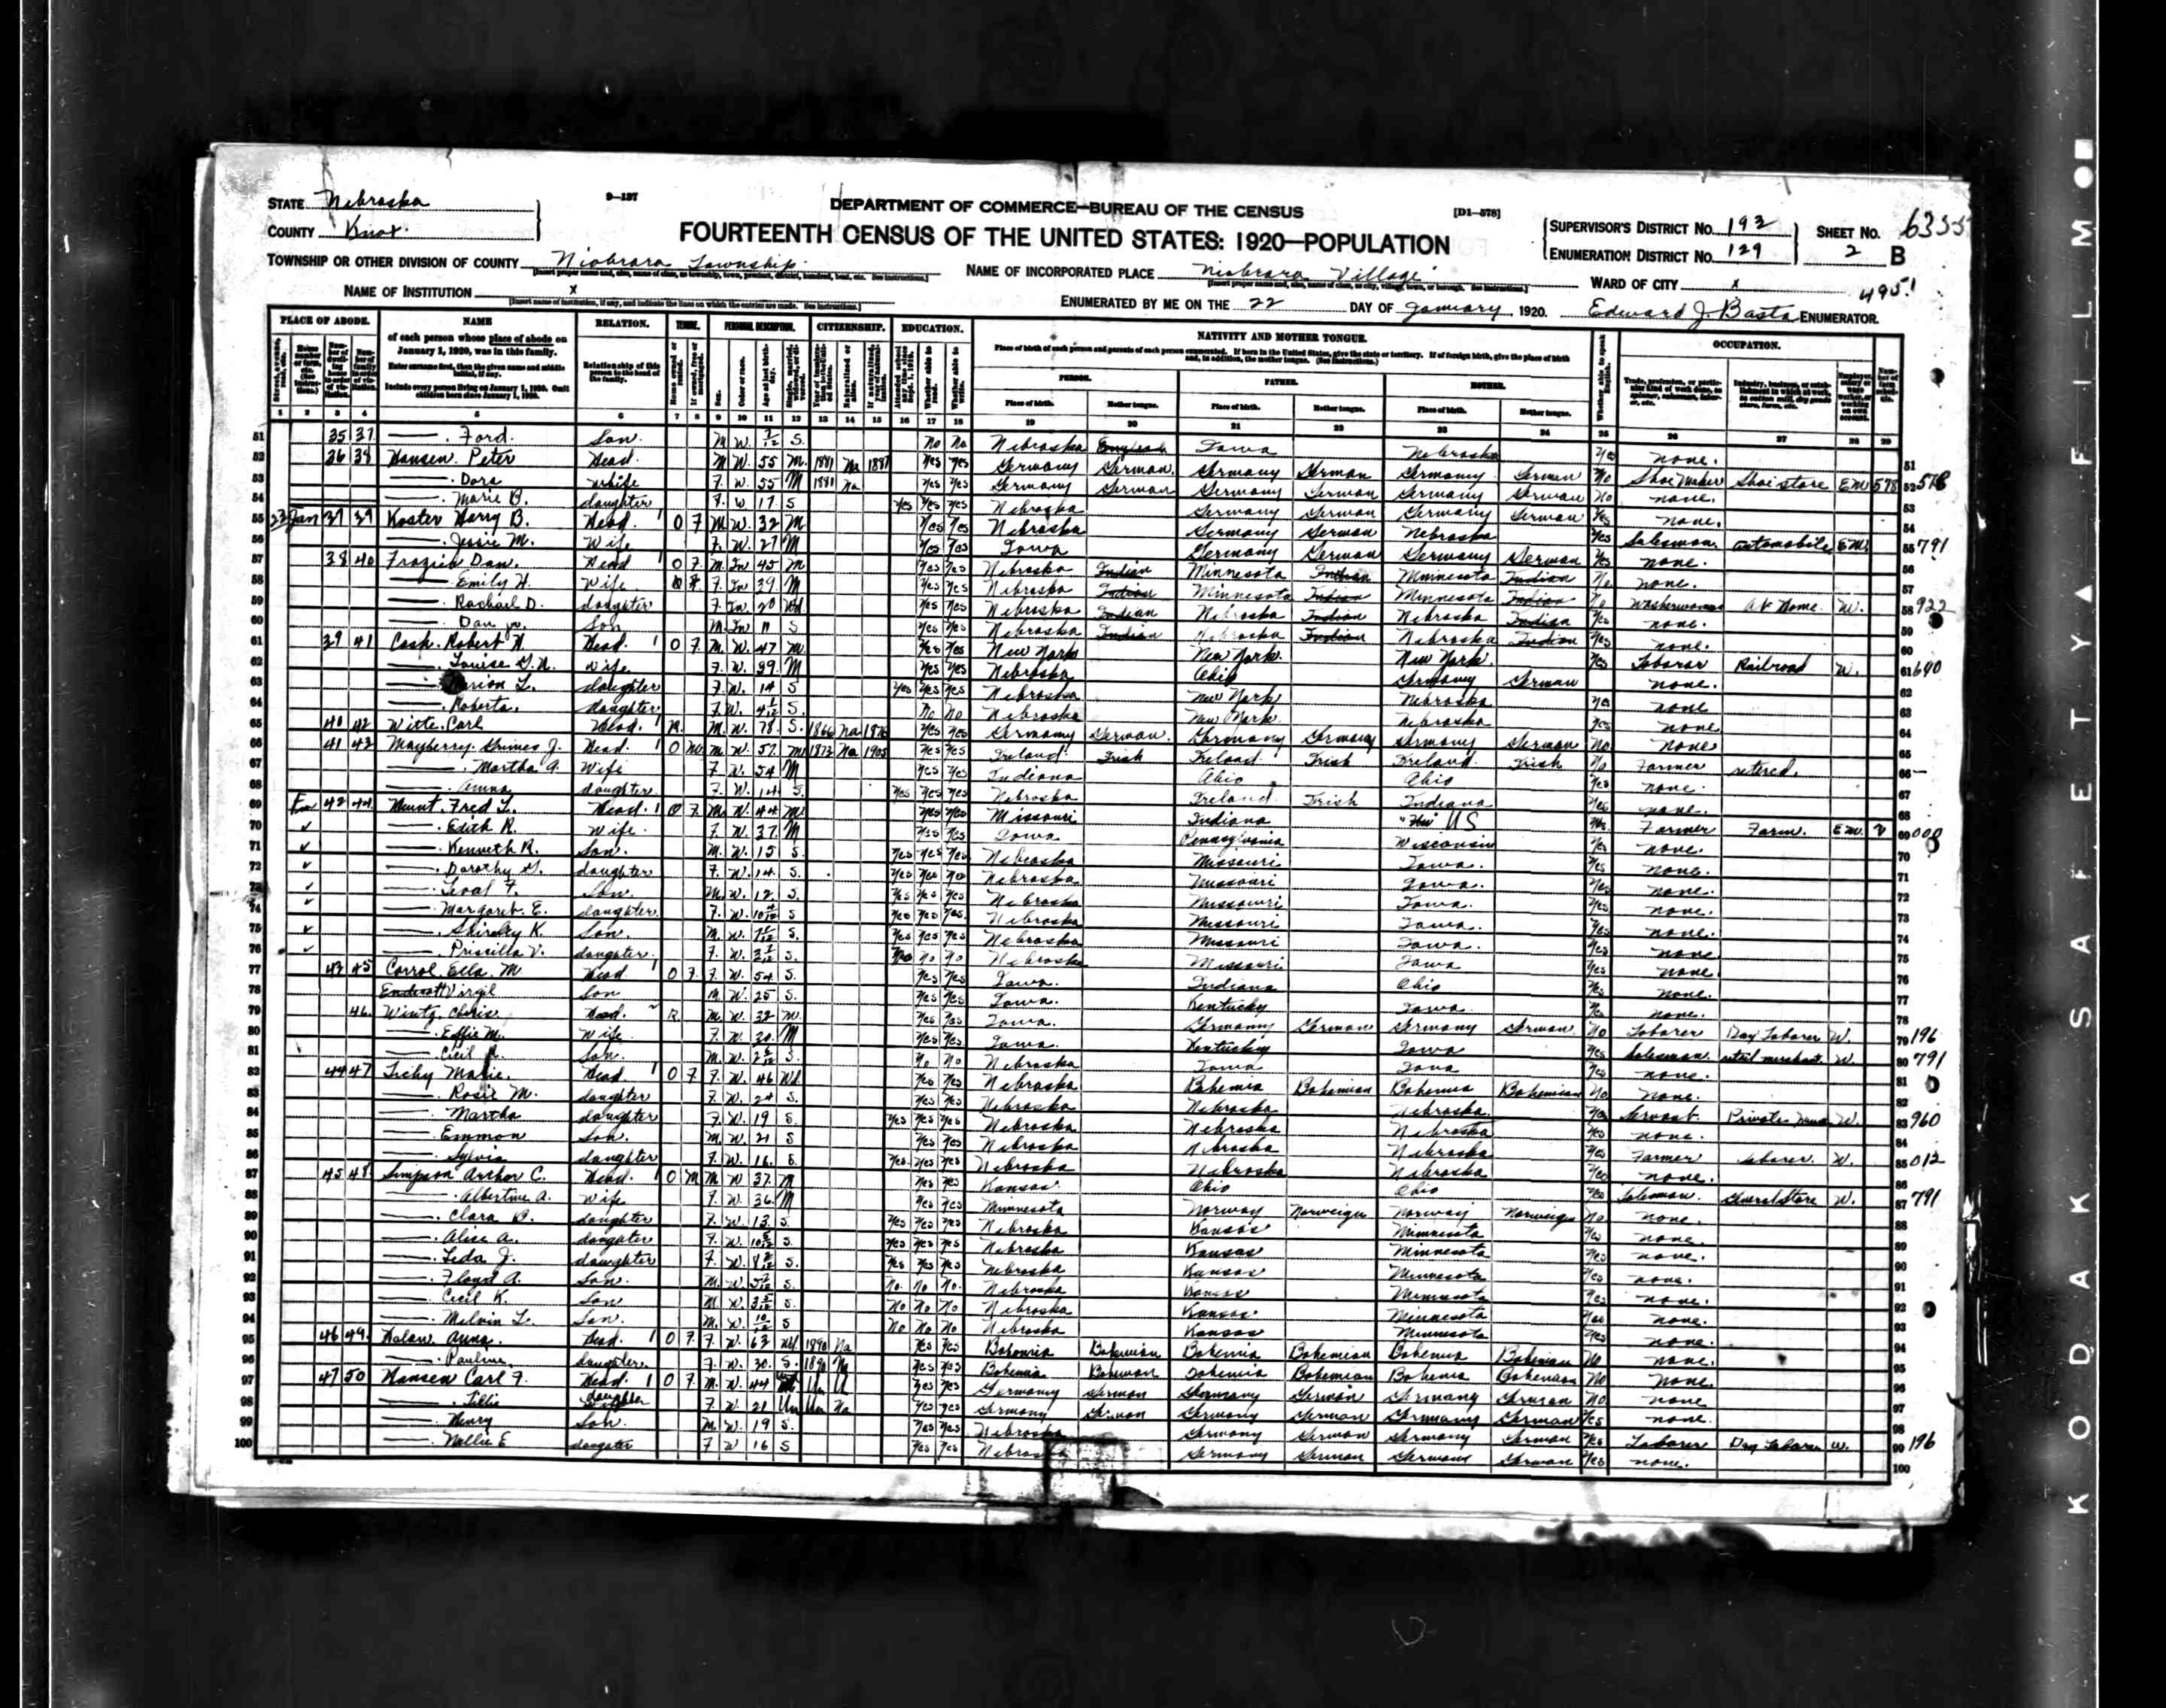 STATE Nebraska 9-137 DEPARTMENT OF COMMERCE—BUREAU OF THE CENSUS [D1-578]
COUNTY Knox. FOURTEENTH CENSUS OF THE UNITED STATES: 1920—POPULATION SUPERVISOR'S DISTRICT No. 193 SHEET No. 6355
ENUMERATION DISTRICT No. 129 2 B
TOWNSHIP OR OTHER DIVISION OF COUNTY Niobrara Township. NAME OF INCORPORATED PLACE Niobrara Village WARD OF CITY x
NAME OF INSTITUTION x ENUMERATED BY ME ON THE 22 DAY OF January, 1920. Edward J. Basta ENUMERATOR.
PLACE OF ABODE. NAME RELATION. TENURE. PERSONAL DESCRIPTION. CITIZENSHIP. EDUCATION. NATIVITY AND MOTHER TONGUE. OCCUPATION.
of each person whose place of abode on January 1, 1920, was in this family.
Enter surname first, then the given name and middle initial, if any.
Include every person living on January 1, 1920. Omit children born since January 1, 1920.
Relationship of this person to the head of the family.
PERSON. FATHER. MOTHER.
Place of birth. Mother tongue. Place of birth. Mother tongue. Place of birth. Mother tongue.
1 2 3 4 5 6 7 8 9 10 11 12 13 14 15 16 17 18 19 20 21 22 23 24 25 26 27 28 29
51 35 37 Ford. Son. M W. S. No No Nebraska Iowa Nebraska Yes none.
52 36 38 Hansen Peter Head M W. 55 M. 1881 Na 1887 Yes Yes Germany German. Germany German Germany German No Shoe maker Shoe store Em 578
53 Dora wife F. W. 55 M 1881 Na Yes Yes Germany German Germany German Germany German No none.
54 Marie B. daughter F. W 17 S Yes Yes Yes Nebraska Germany German Germany German Yes none.
55 23 Jan 37 39 Koster Harry B. Head 1 O F M W. 32 M Yes Yes Nebraska Germany German Nebraska Yes Salesman automobile Em. 791
56 Jessie M. Wife F. W. 27 M Yes Yes Iowa Germany German Germany German Yes none.
57 38 40 Frazier Dan. Head 1 O F. M. In 45 M Yes Yes Nebraska Indian Minnesota Indian Minnesota Indian No none.
58 Emily H. Wife F. In 39 M Yes Yes Nebraska Indian Minnesota Indian Minnesota Indian No Washerwoman At Home. W. 922
59 Rachael D. daughter F. In 20 Yes Yes Nebraska Indian Nebraska Indian Nebraska Indian Yes none.
60 Dan jr. Son M In 11 S Yes Yes Nebraska Indian Nebraska Indian Nebraska Indian Yes none.
61 39 41 Cash. Robert H. Head. 1 O F. M. W. 47 M. Yes Yes New York New York. New York Yes Laborer Railroad W. 690
62 Wife F. W. 39 M Yes Yes Nebraska Ohio Germany German none.
63 Marion L. daughter F. W. 14 S Yes Yes Yes Nebraska New York Nebraska Yes none
64 Roberta. daughter F. W. S No No Nebraska New York Nebraska Yes none
65 40 42 Witte. Carl Head. 1 R. M. W. 78. S. 1866 Na Yes Yes Germany German. Germany Germany Germany German No none
66 41 43 Mayberry Grimes J. Head. 1 O M. M. W. 57. M 1873 Na 1905 Yes Yes Ireland Irish Ireland Irish Ireland Irish No Farmer retired.
67 Martha A. Wife F. W. 54 M Yes Yes Indiana Ohio Ohio Yes none.
68 Anna daughter F. W. 14 S. Yes Yes Yes Nebraska Ireland Irish Indiana Yes none.
69 Fm 42 44 Fred L. Head. 1 O F. M. W. 44 M. Yes Yes Missouri Indiana US Farmer Farm. Em.
70 Edith R. Wife. F. W. 37. M Yes Yes Iowa Pennsylvania Wisconsin Yes none.
71 Kenneth R. Son. M. W. 15 S. Yes Yes Yes Nebraska Missouri Iowa. Yes none.
72 Dorothy daughter F. W. 14. S. Yes Yes Yes Nebraska Missouri Iowa. Yes none.
73 Son. M. W. 12 S. Yes Yes Yes Nebraska Missouri Iowa. Yes none.
74 Margaret. E. daughter F. W. S Yes Yes Yes. Nebraska Missouri Iowa. Yes none.
75 Shirley K. Son. M. W. S. Yes Yes Yes Nebraska Missouri Iowa. Yes none
76 Priscilla V. daughter. F. W. S. No No Nebraska Missouri Iowa Yes none
77 43 45 Carrol. Ella. M. Head 1 O F F. W. 54 S. Yes Yes Iowa. Indiana Ohio Yes none.
78 Virgil Son M. W. 25 S. Yes Yes Iowa. Kentucky Iowa. Yes none.
79 46 Wintz. Chris Head. R. M. W. 32 M. Yes Yes Iowa. Germany German Germany German. No Laborer Day Laborer W. 196
80 Effie M. Wife F. W. 30. M Yes Yes Iowa. Kentucky Iowa Yes Saleswoman. W. 791
81 Cecil R. Son. M. W. S. No No Nebraska Iowa Iowa Yes none.
82 44 47 Tichy Marie. Head 1 O F F. W. 46 Wd Yes Yes Nebraska Bohemia Bohemian Bohemia Bohemian No None.
83 Rosie M. daughter F. W. 24 S. Yes Yes Nebraska Nebraska Nebraska. Yes Servant. Private W. 960
84 Martha daughter F. W. 19 S. Yes Yes Yes Nebraska Nebraska Nebraska Yes none.
85 Emmon Son. M. W. 21 S Yes Yes Nebraska Nebraska Nebraska Yes Farmer laborer. W. 012
86 Sylvia daughter F. W. 16. S. Yes. Yes Yes Nebraska Nebraska Nebraska Yes none.
87 45 48 Simpson Arthur C. Head. 1 O M M W 37. M Yes Yes Kansas Ohio Ohio Yes Salesman. General Store W. 791
88 Albertine A. Wife F. W. 36 M Yes Yes Minnesota Norway Norweigen Norway Norweigen No none.
89 Clara B. daughter F. W. 13. S. Yes Yes Yes Nebraska Kansas Minnesota Yes none.
90 Alice A. daughter F. W. S. Yes Yes Yes Nebraska Kansas Minnesota Yes none.
91 Leda J. daughter F. W. S. Yes Yes Yes Nebraska Kansas Minnesota Yes none.
92 Floyd A. Son. M. W. S. No. No. No. Nebraska Kansas Minnesota Yes none.
93 Cecil K. Son M. W. S. No No No Nebraska Kansas Minnesota Yes none.
94 Melvin L. Son. M. W. S No No No Nebraska Kansas Minnesota Yes none.
95 46 49 Anna. Head. 1 O F. F. W. 63 Wd. 1890 Na Yes Yes Bohemia Bohemian Bohemia Bohemian Bohemia Bohemian No none.
96 Pauline. daughter. F. W. 30. S. 1890 Na Yes Yes Bohemia Bohemian Bohemia Bohemian Bohemia Bohemian No none.
97 47 50 Hansen Carl F. Head. 1 O F. M. W. 44 Un Yes Yes Germany German Germany German Germany German No none
98 Tillie daughter F. W. 21 Un Un Na Yes Yes Germany German Germany German Germany German Yes none.
99 Henry Son. M. W. 19 S. Yes Yes Nebraska Germany German Germany German Yes Laborer Day Laborer W. 196
100 Nellie E daughter F W 16 S Yes Yes Nebraska Germany German Germany German Yes none.
KODAK SAFETY FILM